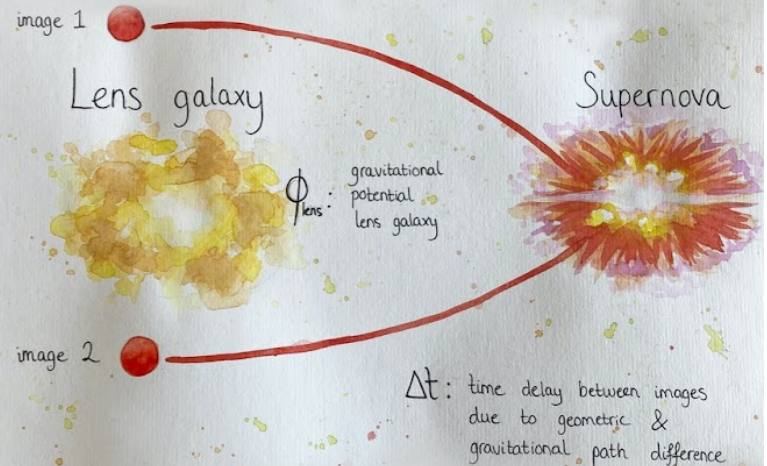 image 1
Lens galaxy
Supernova
ϕlens: gravitational
potential
lens galaxy
image 2
Δt: time delay between images
due to geometric &
gravitational path difference